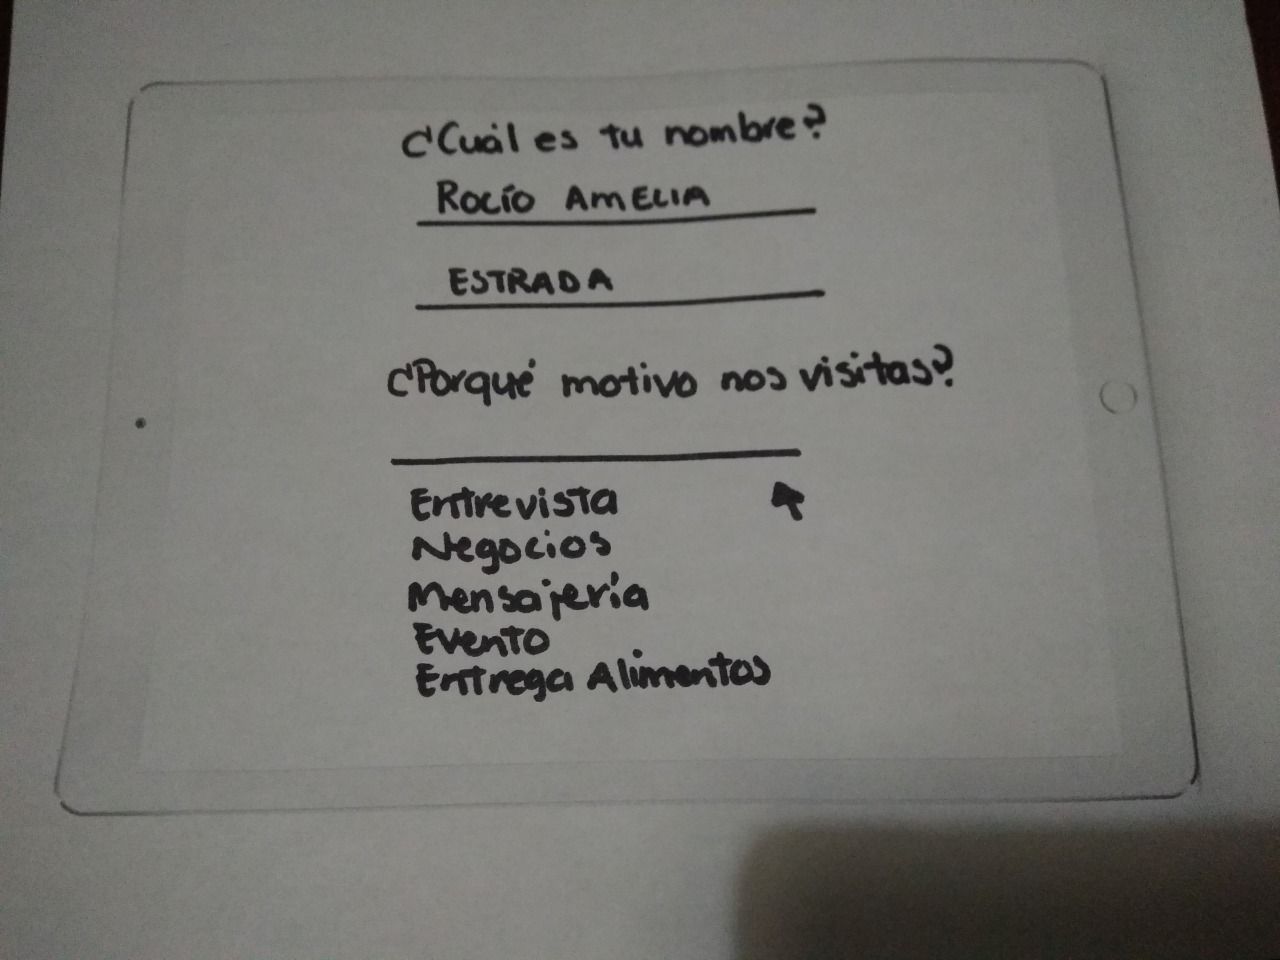 ¿Cuál es tu nombre?
Rocío AMELIA
ESTRADA
¿Porqué motivo nos visitas?
Entrevista
Negocios
Mensajería
Evento
Entrega Alimentos